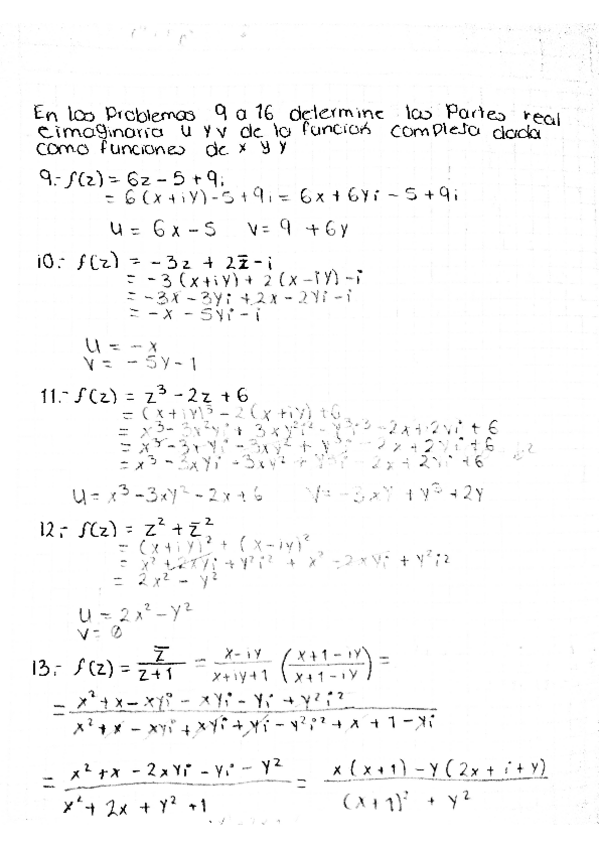 En los Problemas 9 a 16 determine las Partes real
e imaginaria u y v de la funcion compleja dada
como funciones de x y y
9.- f(z) = 6z - 5 + 9i
= 6(x + iy) - 5 + 9i = 6x + 6yi - 5 + 9i
U = 6x - 5 V = 9 + 6y
10.- f(z) = -3z + 2z̄ - i
= -3(x+iy) + 2(x-iy) - i
= -3x - 3yi + 2x - 2yi - i
= -x - 5yi - i
U = -x
V = -5y - 1
11.- f(z) = z³ - 2z + 6
= (x+iy)³ - 2(x+iy) + 6
= x³ - 3x²yi + 3xy²i² - y³i³ - 2x + 2yi + 6
= x³ - 3xyi - 3xy² + y³i - 2x + 2yi + 6
= x³ - 3xyi - 3xy² + y³i - 2x + 2yi + 6
U = x³ - 3xy² - 2x + 6 V = -3xy + y³ + 2y
12.- f(z) = z² + z̄²
= (x+iy)² + (x-iy)²
= x² + 2xyi + y²i² + x² - 2xyi + y²i²
= 2x² - y²
U = 2x² - y²
V = 0
13.- f(z) = z̄/(z+1) = (x-iy)/(x+iy+1) ((x+1-iy)/(x+1-iy)) =
= (x² + x - xyi - xyi - yi + y²i²)/(x² + x - xyi + xyi + yi - y²i² + x + 1 - yi)
= (x² + x - 2xyi - yi - y²)/(x² + 2x + y² + 1) = (x(x+1) - y(2x + i + y))/((x+1)² + y²)